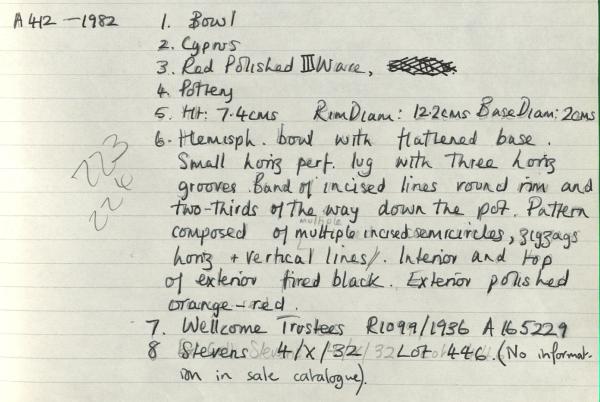 A412-1982 1. Bowl
2. Cyprus
3. Red Polished III Ware,
4. Pottery
5. Ht: 7.4cms Rim Diam: 12.2cms Base Diam: 2cms
6. Hemisph. bowl with flattened base.
Small horiz perf. lug with three horiz
grooves. Band of incised lines round rim and
two-thirds of the way down the pot. Pattern
multiple
composed of multiple incised semicircles, zigzags
horiz + vertical lines/. Interior and top
of exterior fired black. Exterior polished
orange-red.
7. Wellcome Trustees R1099/1936 A165229
8 Stevens 4/X/32 Lot 446. (No informat-
ion in sale catalogue).
223
226